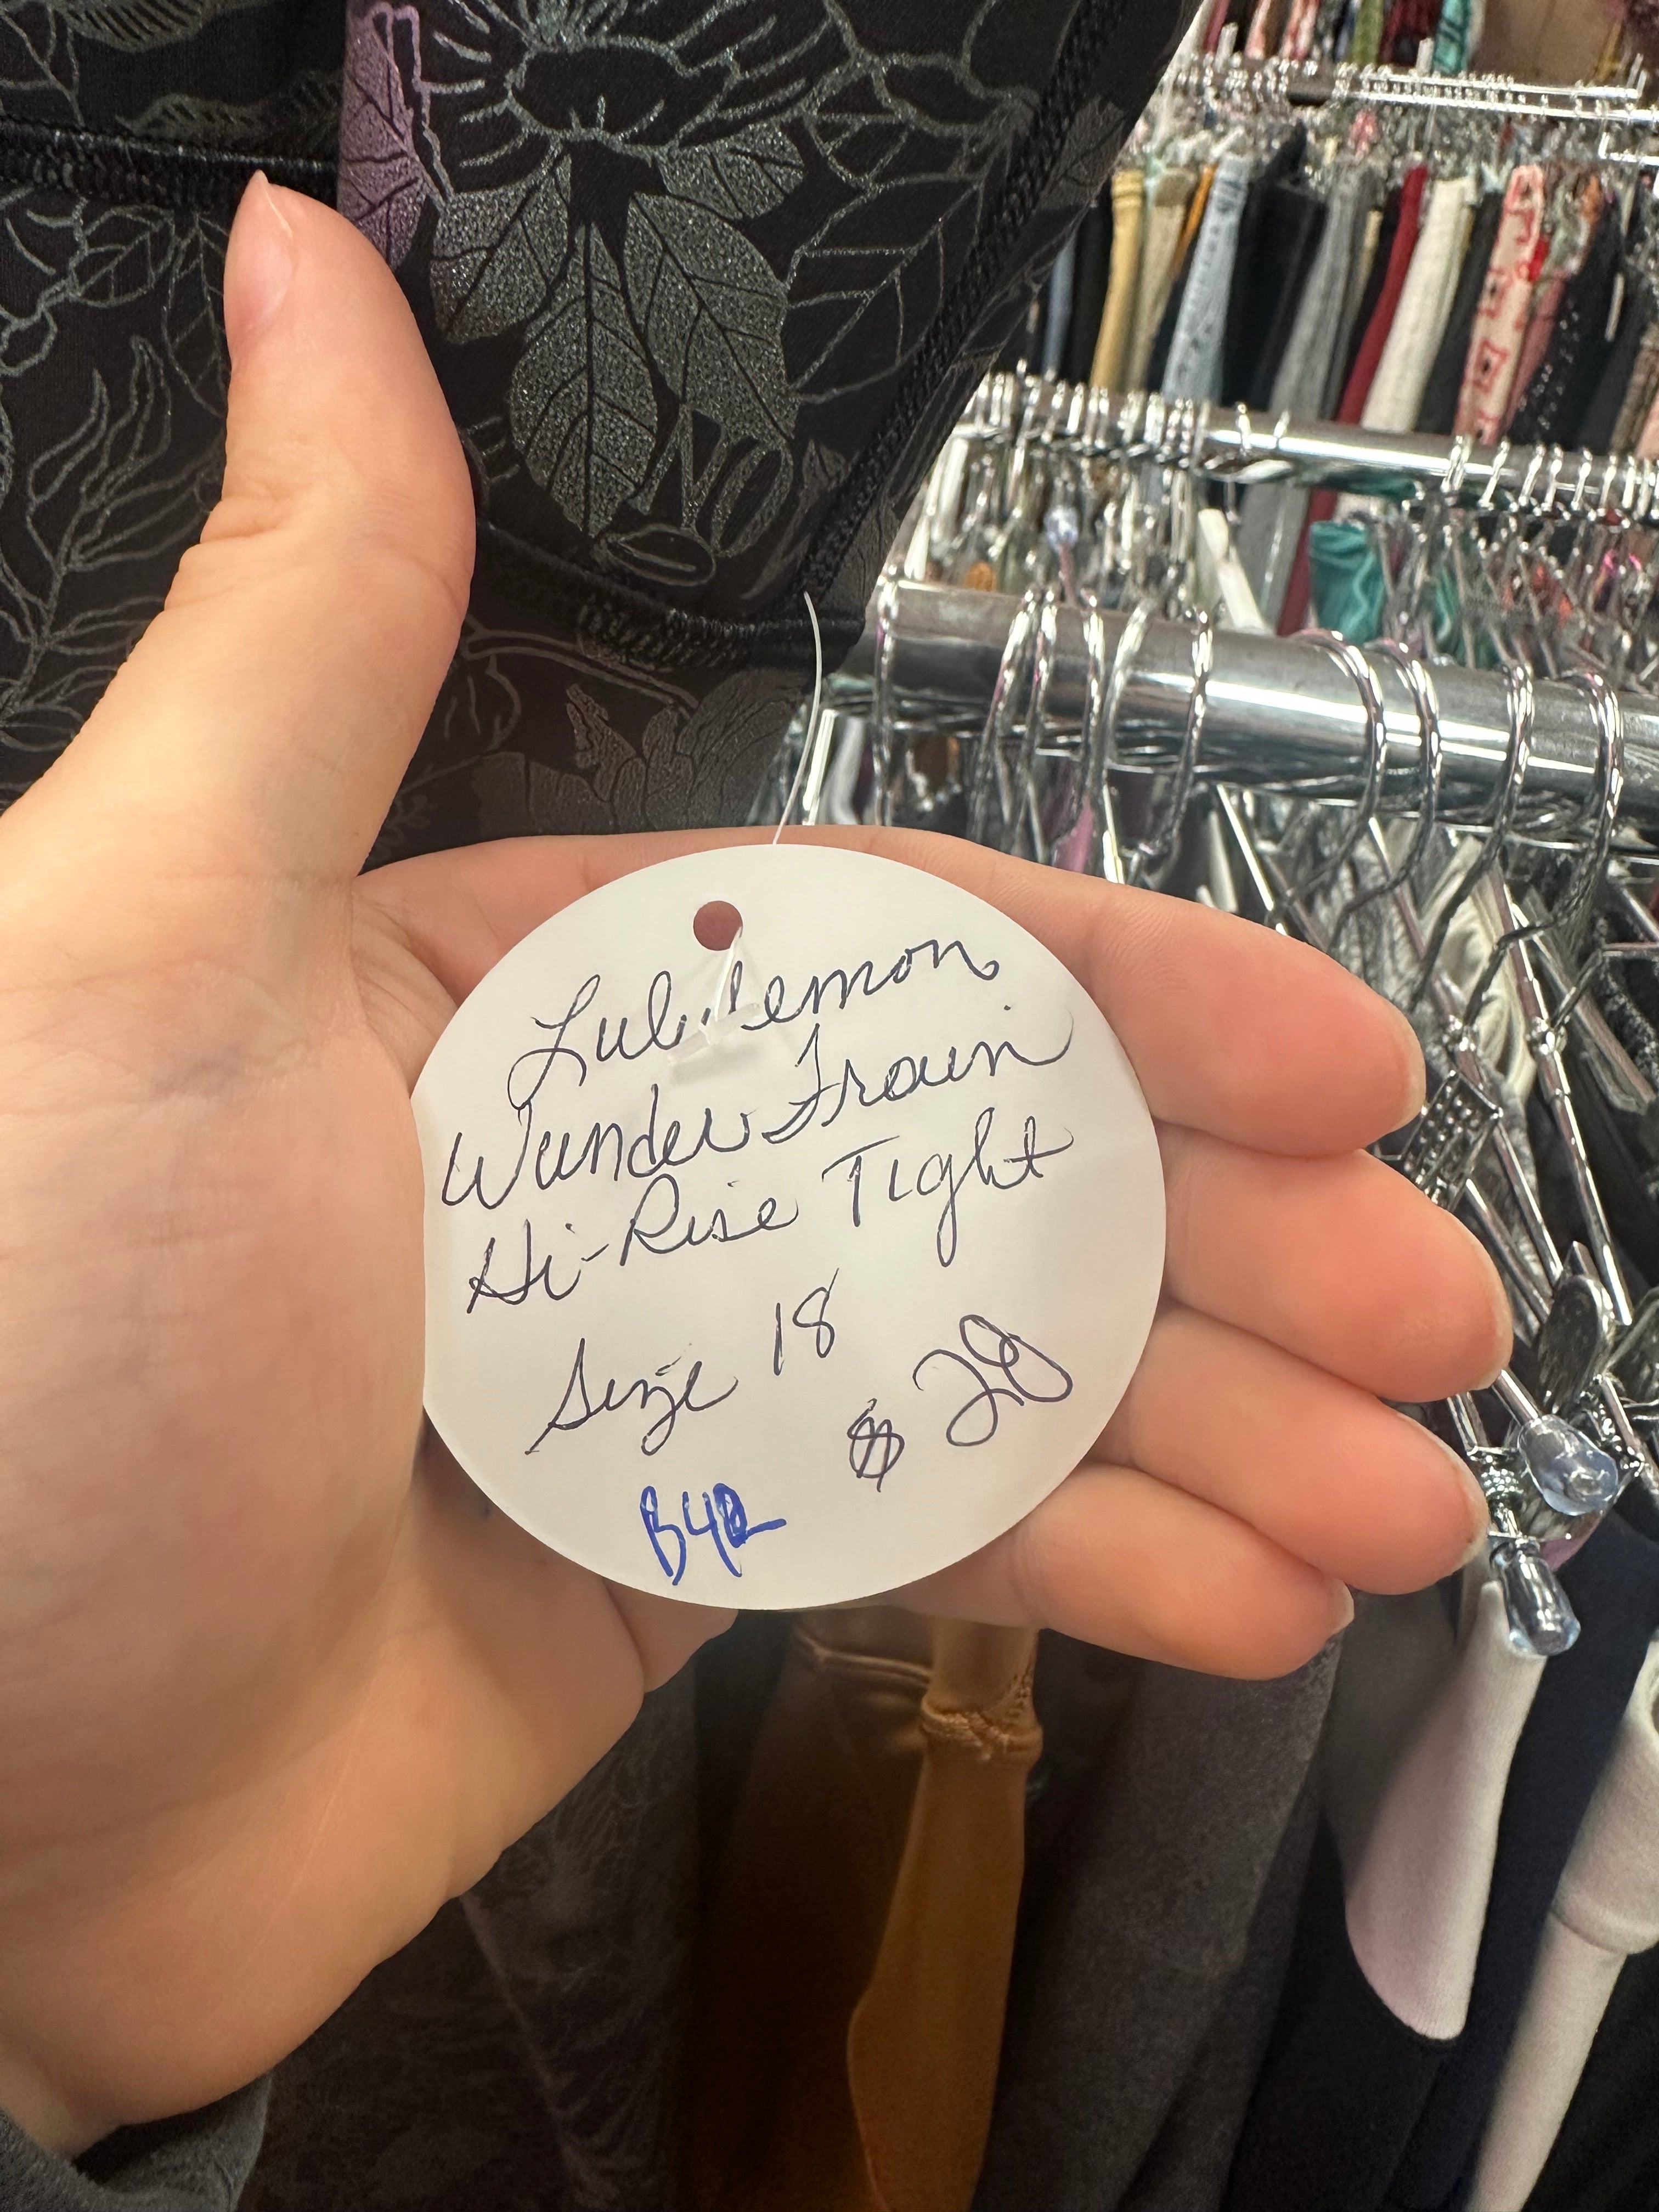 NO
Lululemon
Wunder Train
Hi-Rise Tight
Size 18
$20